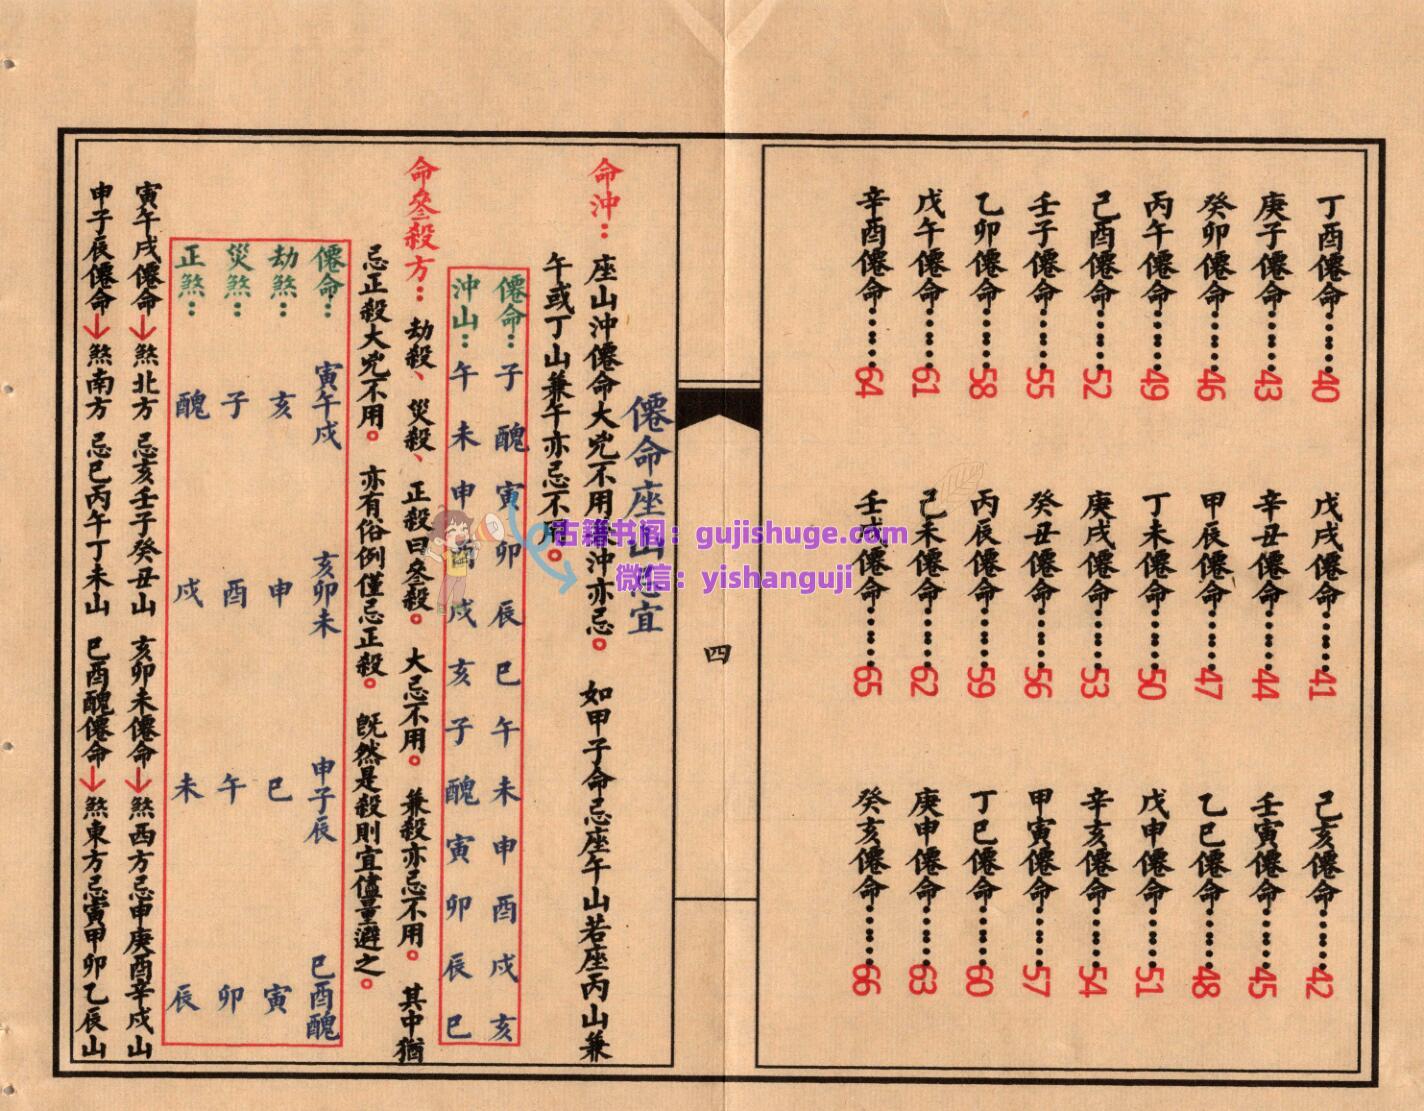 丁酉僊命……40 戊戌僊命……41 己亥僊命……42
庚子僊命……43 辛丑僊命……44 壬寅僊命……45
癸卯僊命……46 甲辰僊命……47 乙巳僊命……48
丙午僊命……49 丁未僊命……50 戊申僊命……51
己酉僊命……52 庚戌僊命……53 辛亥僊命……54
壬子僊命……55 癸丑僊命……56 甲寅僊命……57
乙卯僊命……58 丙辰僊命……59 丁巳僊命……60
戊午僊命……61 己未僊命……62 庚申僊命……63
辛酉僊命……64 壬戌僊命……65 癸亥僊命……66
四
僊命座山忌宜
命沖：座山沖僊命大兇不用兼沖亦忌。如甲子命忌座午山若座丙山兼
午或丁山兼午亦忌不用。
僊命：子醜寅卯辰巳午未申酉戌亥
沖山：午未申酉戌亥子醜寅卯辰巳
命叄殺方：劫殺、災殺、正殺曰叄殺。大忌不用。兼殺亦忌不用。其中猶
忌正殺大兇不用。亦有俗例僅忌正殺。既然是殺則宜儘量避之。
僊命：寅午戌 亥卯未 申子辰 巳酉醜
劫煞：亥 申 巳 寅
災煞：子 酉 午 卯
正煞：醜 戌 未 辰
寅午戌僊命→煞北方 忌亥壬子癸丑山 亥卯未僊命→煞西方忌申庚酉辛戌山
申子辰僊命→煞南方 忌巳丙午丁未山 巳酉醜僊命→煞東方忌寅甲卯乙辰山
古籍书阁：gujishuge.com
微信：yishanguji